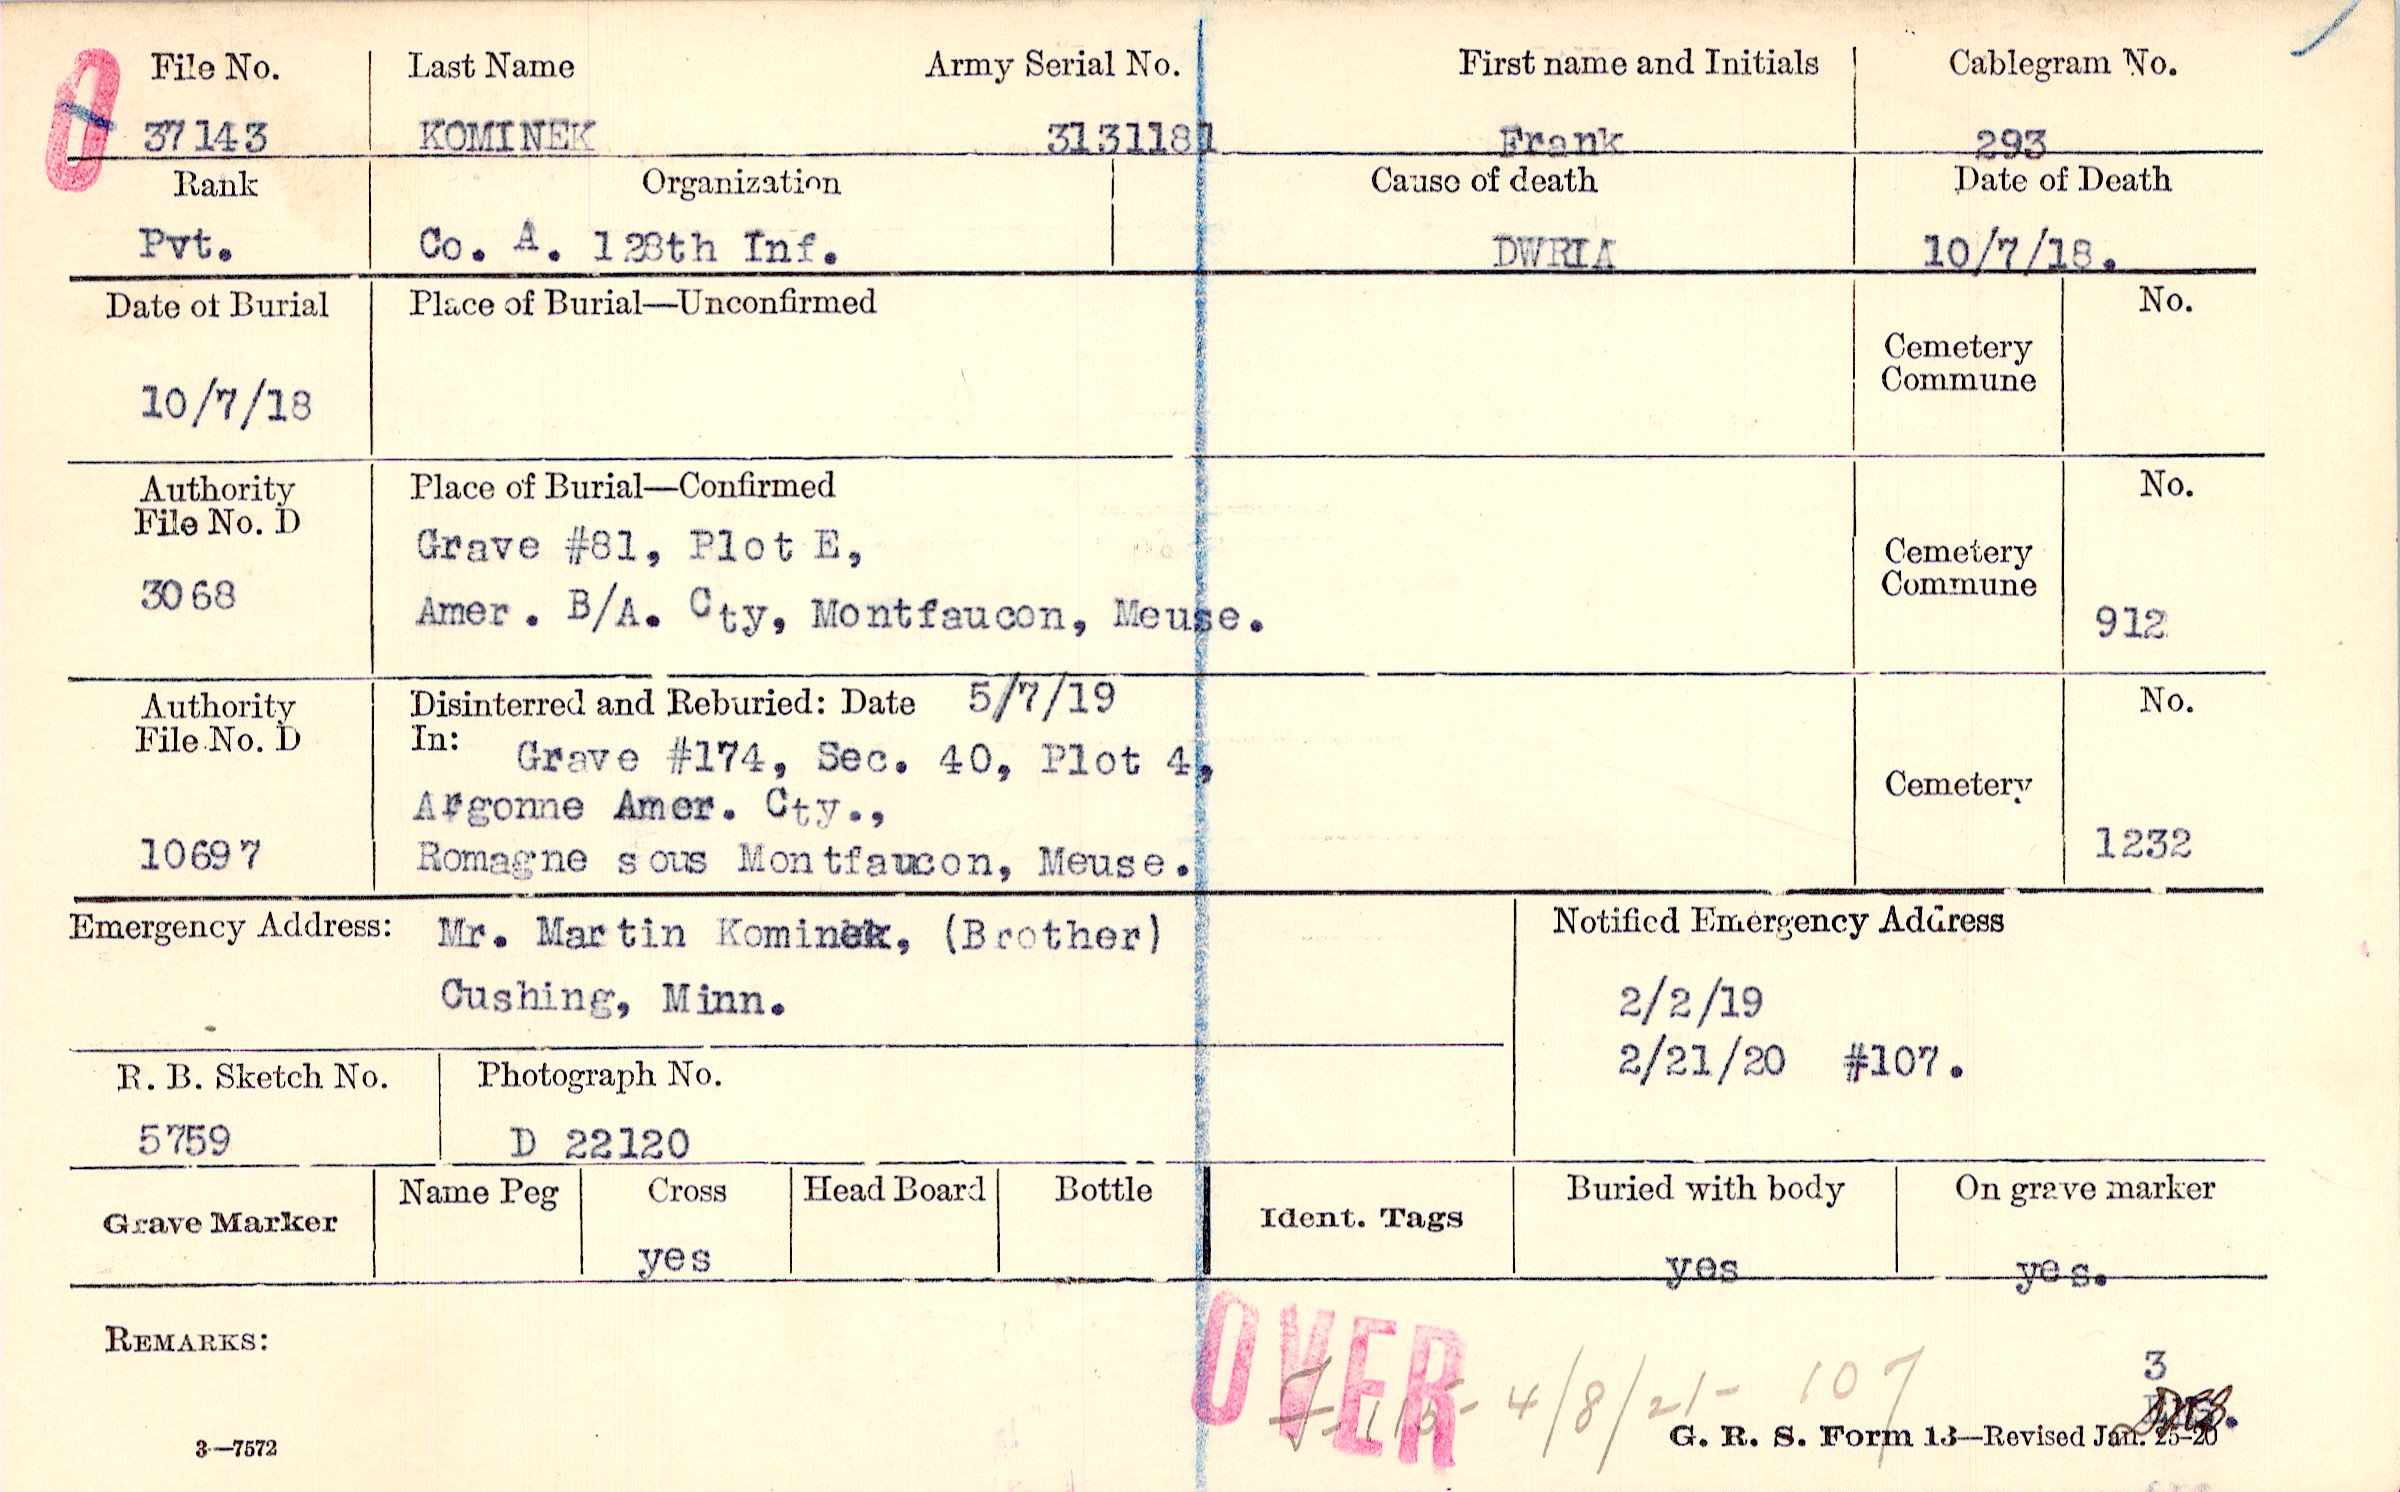 File No. Last Name Army Serial No. First name and Initials Cablegram No.
37143 KOMINEK 3131181 Frank 293
Rank Organization Cause of death Date of Death
Pvt. Co. A. 128th Inf. DWRIA 10/7/18.
Date of Burial Place of Burial—Unconfirmed No.
Cemetery
Commune
10/7/18
Authority Place of Burial—Confirmed No.
File No. D
Grave #81, Plot E,
Cemetery
Commune
3068
Amer. B/A. Cty, Montfaucon, Meuse.
912
Authority Disinterred and Reburied: Date 5/7/19 No.
File No. D In: Grave #174, Sec. 40, Plot 4,
Cemetery
Argonne Amer. Cty.,
10697 Romagne sous Montfaucon, Meuse. 1232
Emergency Address: Mr. Martin Kominek, (Brother) Notified Emergency Address
Cushing, Minn. 2/2/19
2/21/20 #107.
R. B. Sketch No. Photograph No.
5759 D 22120
Grave Marker Name Peg Cross Head Board Bottle Ident. Tags Buried with body On grave marker
yes yes yes.
OVER
REMARKS:
3
4/8/21- 107
3—7572 G. R. S. Form 13—Revised Jan. 25-20